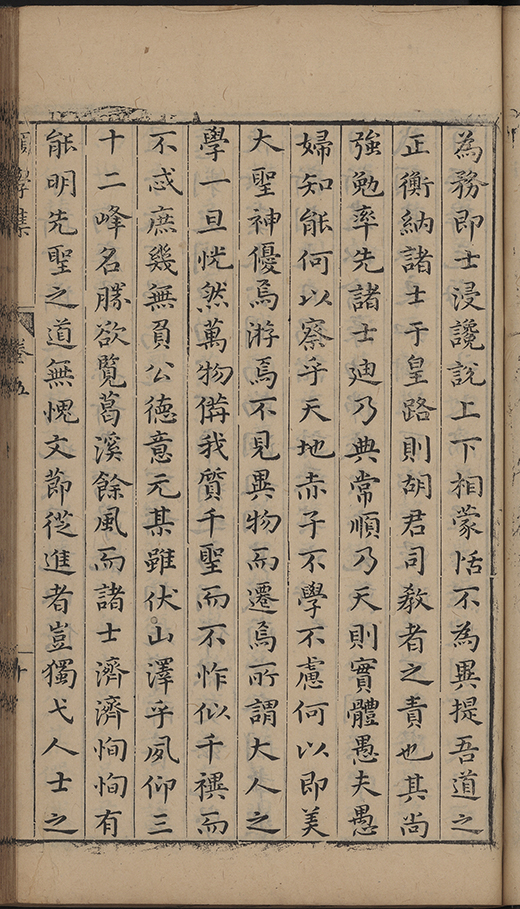 為務即士浸讒說上下相蒙恬不為異提吾道之
正衡納諸士于皇路則胡君司敎者之責也其尚
強勉率先諸士迪乃典常順乃天則實體愚夫愚
婦知能何以察乎天地赤子不學不慮何以即美
大聖神優焉游焉不見異物而遷焉所謂大人之
學一旦恍然萬物備我質千聖而不怍似千禩而
不惑庶幾無負公德意元某雖伏山澤乎夙仰三
十二峰名勝欲覽葛溪餘風而諸士濟濟恂恂有
能明先聖之道無愧文節從進者豈獨弋人士之
學集
卷五
十